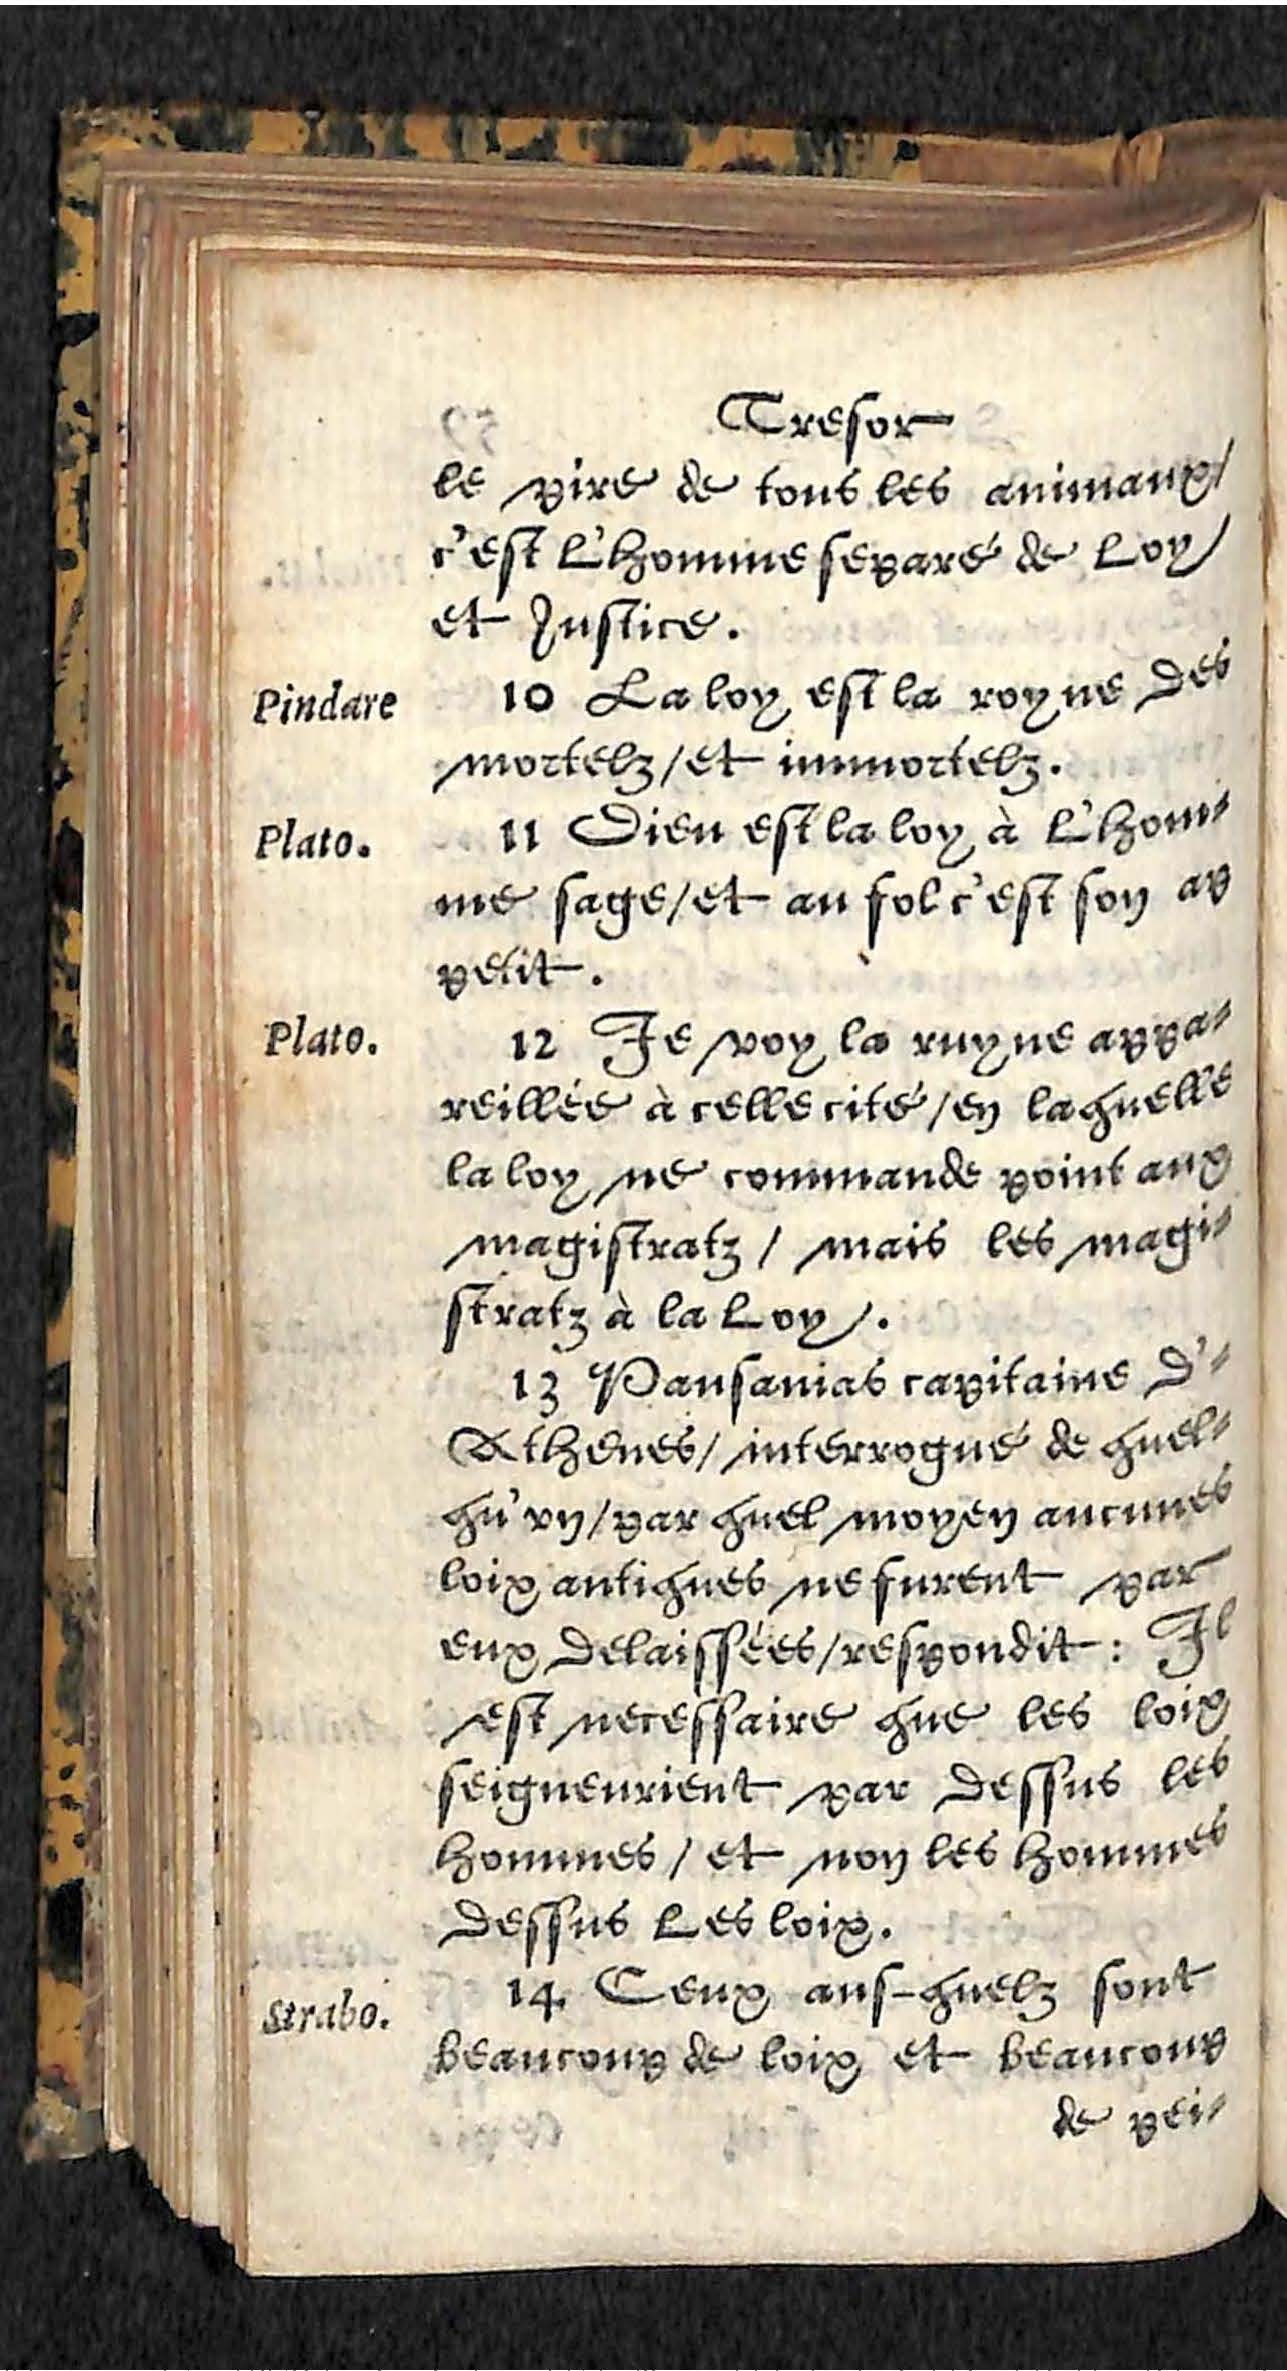 Tresor
le pire de tous les animaux/
c'est L'homme separé de Loy/
et Justice.
Pindare
10 La loy est la royne des
mortelz/et immortelz.
Plato.
11 Dieu est la loy à L'hom-
me sage/et au fol c'est son ap
petit.
Plato.
12 Je voy la ruyne appa-
reillée à celle cité/en laquelle
la loy ne commande point aux
magistratz/ mais les magi-
stratz à la Loy.
13 Pausanias capitaine d'-
Athenes/interrogué de quel-
qu'vn/par quel moyen aucunes
loix antiques ne furent par
eux delaissées/respondit: Il
est necessaire que les loix
seigneurient par dessus les
hommes/ et non les hommes
dessus Les loix.
Strabo.
14 Ceux aus-quelz sont
beaucoup de loix et beaucoup
de pei-